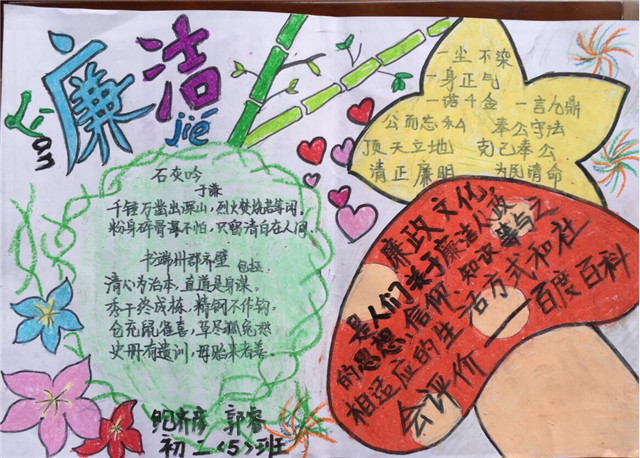 廉洁
lián
jié
石灰吟
于谦
千锤万凿出深山，烈火焚烧若等闲。
粉身碎骨浑不怕，只留清白在人间。
书端州郡斋壁
包拯
清心为治本，直道是身谋。
秀干终成栋，精钢不作钩。
仓充鼠雀喜，草尽狐兔愁
史册有遗训，毋贻来者羞。
鲍齐彦 郭睿
初二<5>班
一尘不染
一身正气
一诺千金 一言九鼎
公而忘私 奉公守法
顶天立地 克己奉公
清正廉明 为民请命
廉政文化，
是人们关于廉洁从政
的思想、信仰、知识等与之
相适应的生活方式和社
会评价
百度百科